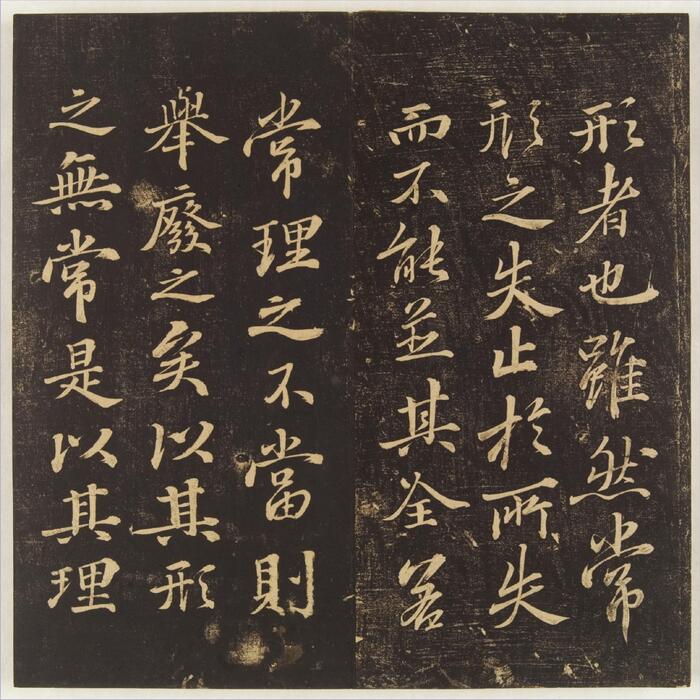 形者也雖然常
形之失止於所失
而不能並其全若
常理之不當則
舉廢之矣以其形
之無常是以其理